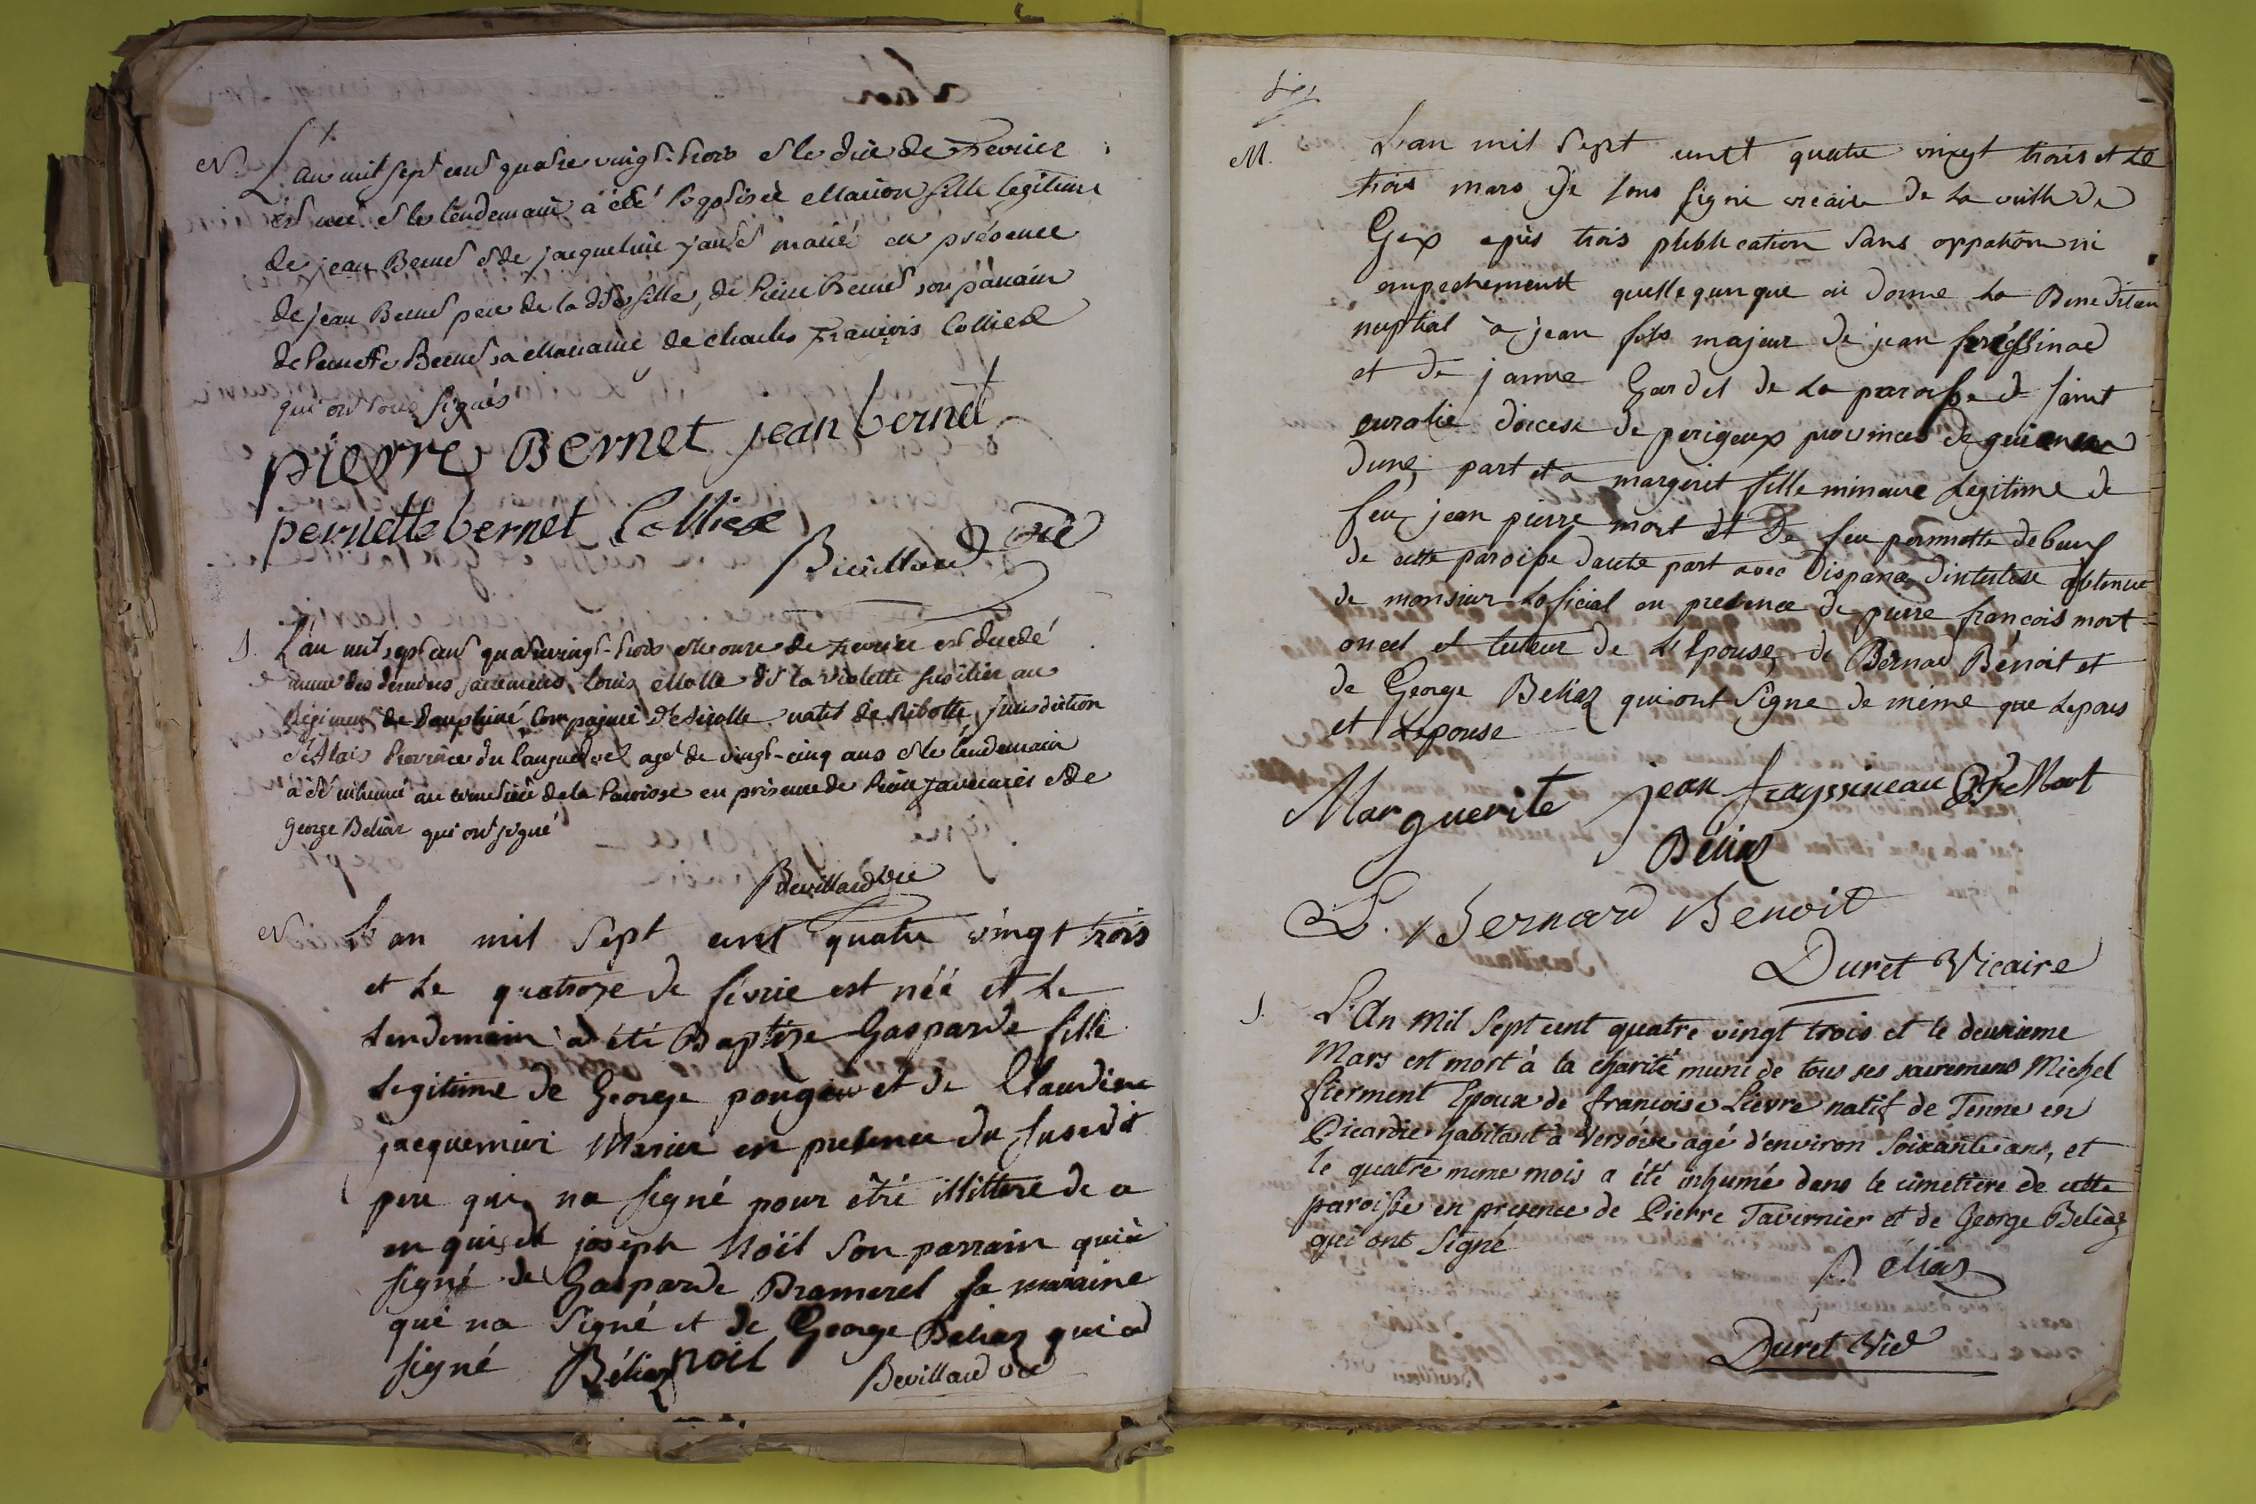 N. L'an mil sept cent quatre vingt-trois et le dix de Fevrier
est née et le lendemain à été baptisée Marion fille legitime
de jean Bernet et de jacqueline mariés en présence
de jean Bernet pere de la dite fille, de Pierre Bernet son parain
de Pernette Bernet sa Maraine de charles François Collier
qui ont tous signés
pierre Bernet jean bernet
pernette bernet Collier
Bevillard vic
S. L'an mil sept cent quatrevingt-trois et le onze de Fevrier est décédé
muni des derniers sacremens, louis Molle dit la violette fusilier au
Régiment de Dauphiné Compagnie natif de Ribotte, jurisdiction
d'Alais Province du Languedoc agé de vingt-cinq ans et le lendemain
a été inhumé au cimetiere de la Paroisse en présence de Pierre Tavernier et de
George Beliaz qui ont signé
Bevillard vic
N. L'an mil sept cent quatre vingt trois
et Le quatroze de févrie est néé et Le
Lendemain a été Baptize Gasparde fille
Legitime de George pougin et de Claudine
jacquemier Marier en presence du susedit
pere qui na signé pour étré illittere de a
en quis et joseph Noël son parrain qui à
signé de Gasparde Bramerel sa maraine
qui na Signé et de George Beliaz qui a
signé Béliaz noil Bevillard vic
M. L'an mil sept centt quatre vingt trois et Le
trois mars Je sous signé vicaire de La ville de
Gex après trois pliblication sans oppation ni
empechementt quellequnque ai donne La Benedition
nuptial à jean fils majeur de jean
et de janne Gardel de La paroisse de saint
euralie dioicese de perigeux provinces de guienne
dune, part et a margerit fille mineure Legitime de
feu jean pierre mort et De feu pernnette debeuf
de cette paroisse daute part avec dispance dintertise obtenue
de monsieur Loficial en presence de pierre francois mort
oncel et tuteur de L'Epouse, de Bernad Bénoit et
de George Beliaz qui ont signe de méme que Lepous
et Lepouse
Marguerite jean frayssineau P F Mort
Béliaz
L. Bernard Benoit
Duret Vicaire
S. L'An Mil Sept cent quatre vingt trois et le deuxieme
Mars est mort à la charité muni de tous ses sacremens Michel
fierment Epoux de francoise Lievre natif de Tenne en
Picardie habitant à Versoix agé d'environ Soixante ans, et
le quatre meme mois a été inhumé dans le cimetiere de cette
paroisse en presence de Pierre Tavernier et de George Beliaz
qui ont signé
Béliaz
Duret Vic